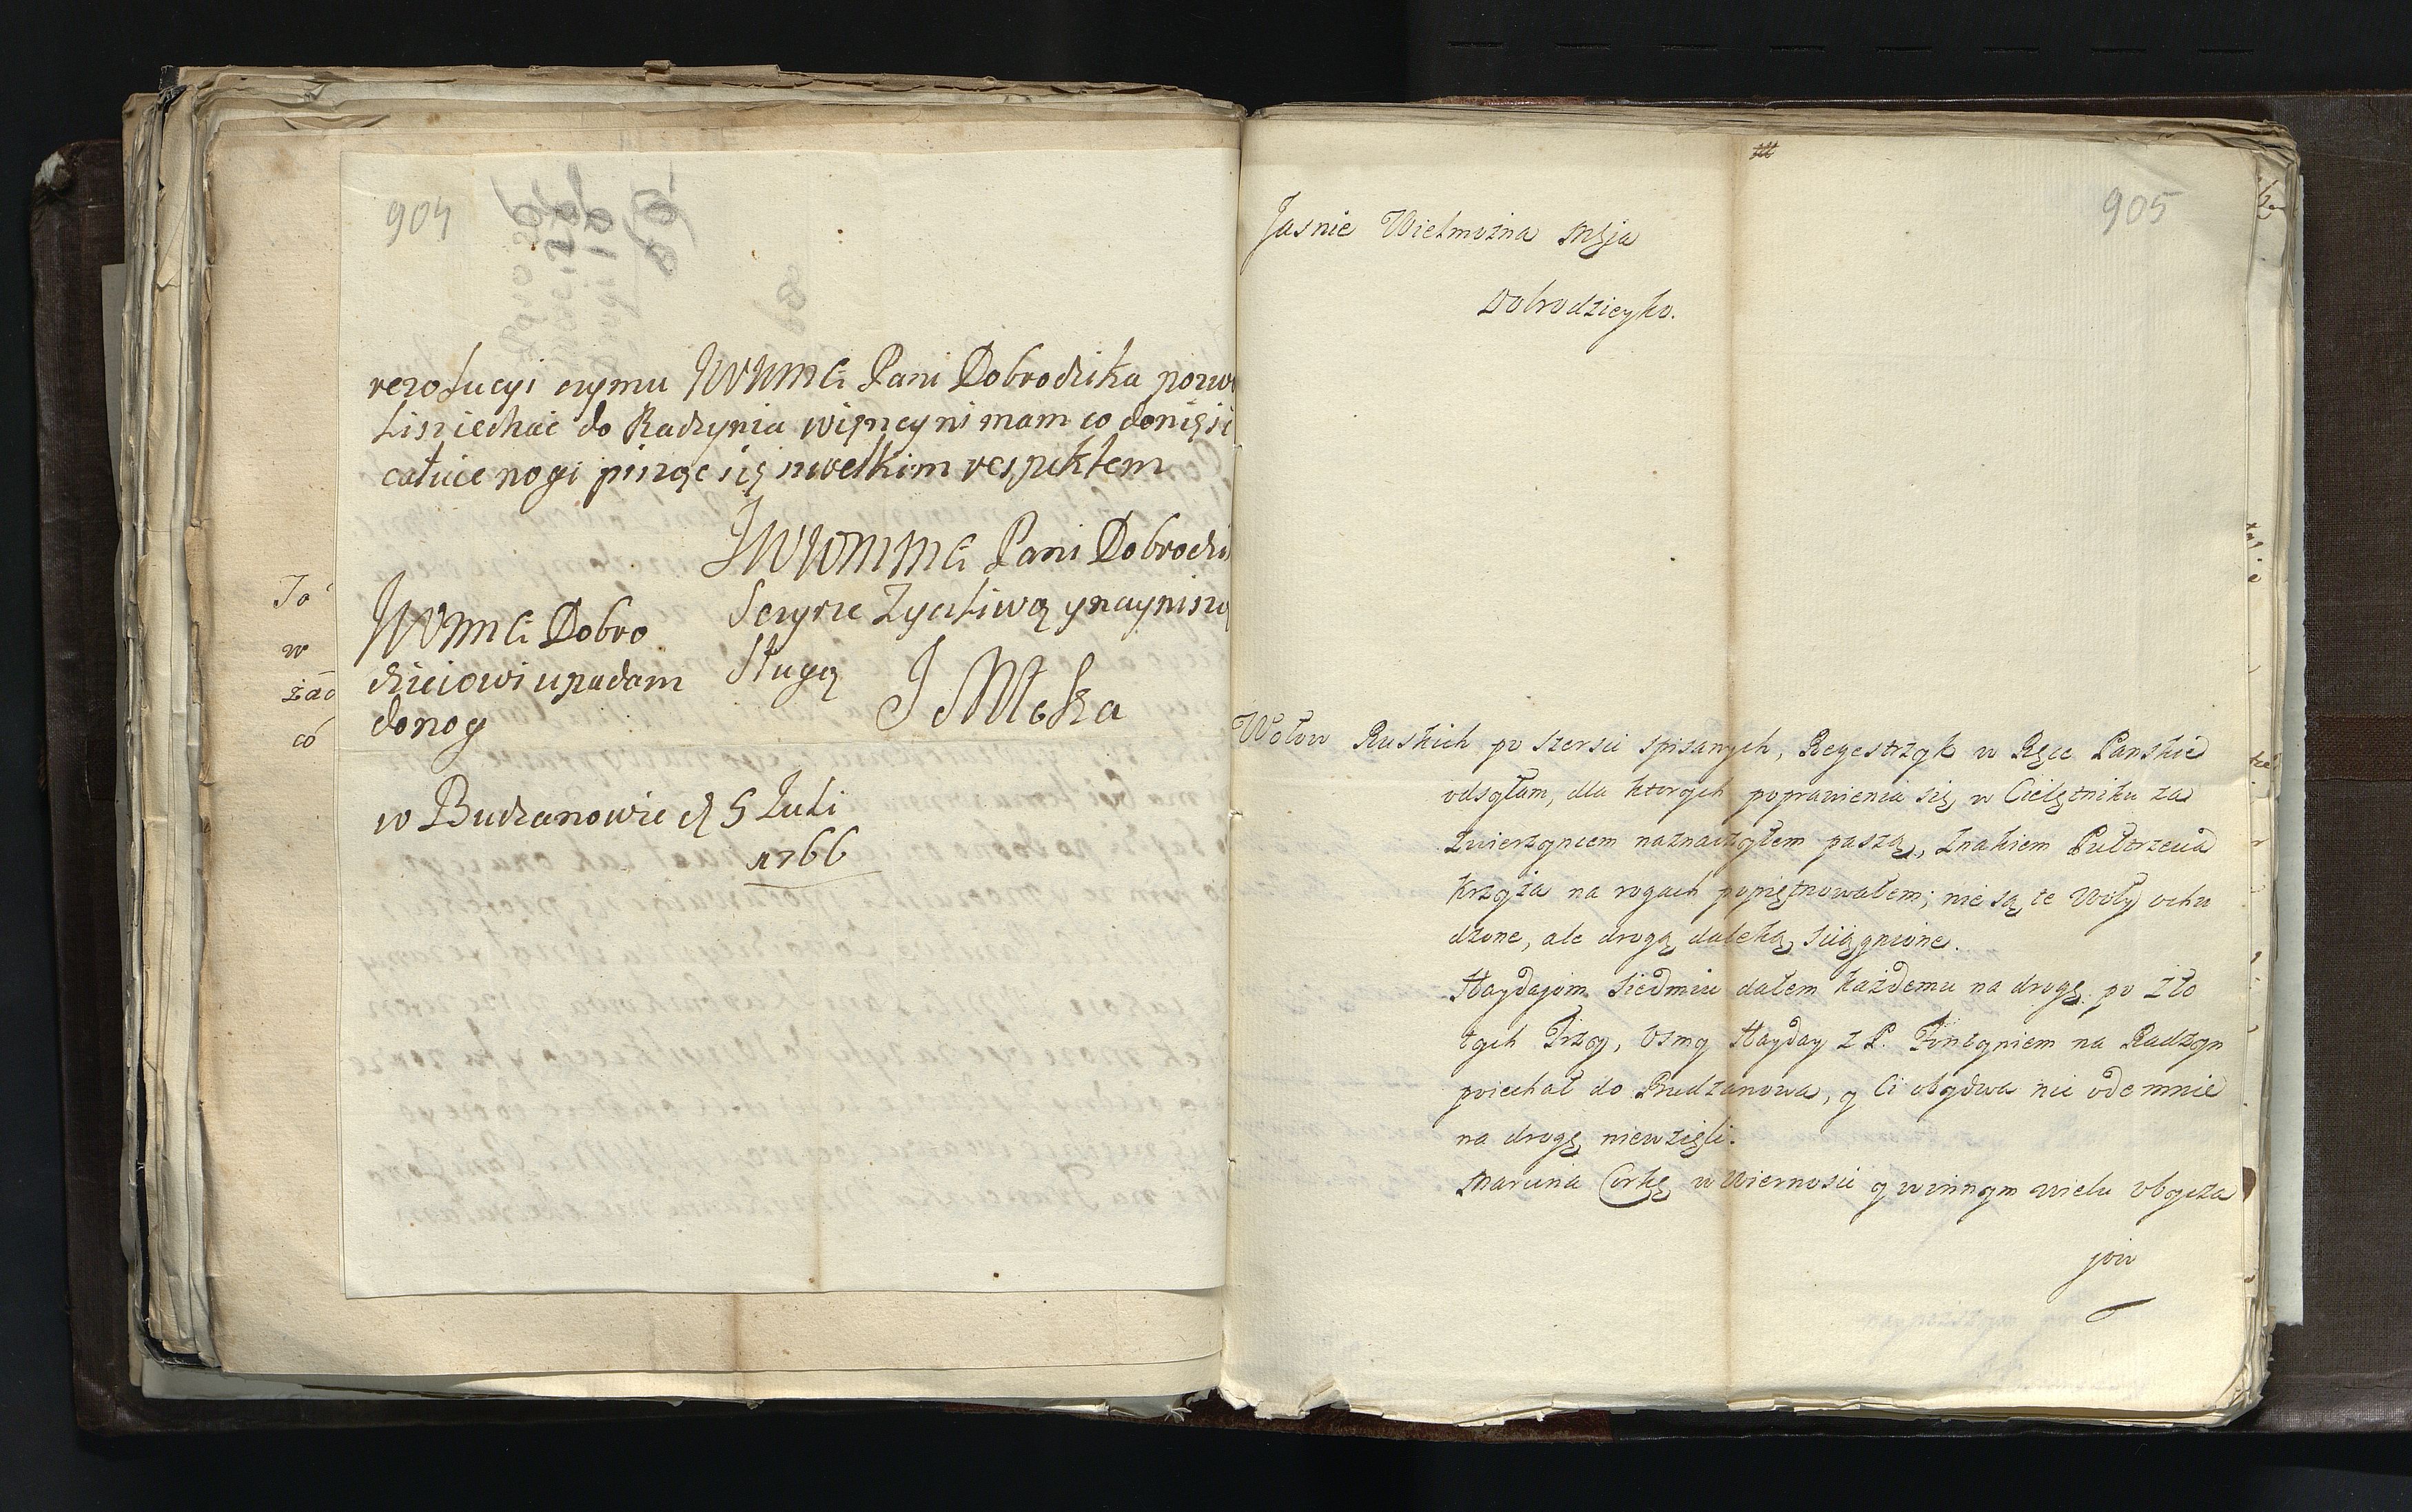 904
rezolucyi czymu JWWMCi Pani Dobrodzika pozwo
li ziechać do Radzynia więncy ni mam co donięsi
całuie nogi pisząc się zwelkim respektem
JWWMMCi Pani Dobrodzi
Sczyrze Zyczliwą y naynisz
Sługą
J Młoka
JWMCi Dobro
dzieiowi upadam
do nog
w Budzanowie d 5 Juli
1766
Jo
w
żad
có
905
Jasnie Wielmożna Mśja
Dobrodzieyko.
Wołow Ruskich po szersci spisanych, Regestrzyk w Ręce Panskie
odsyłam, dla ktorych poprawienia się w Cielętniku za
Zwierzyncem naznaczyłem paszą, Znakiem Pułtrzecia
Krzyża na rogach popiętnowałem; nie są te Woły ochu
dzone, ale drogą daleką sciągnione.
Haydajom Siedmiu dałem każdemu na drogę po Zło
tych Trzy, Osmy Hayday z P. na Radzyn
poiechał do Budzanowa, y Ci obydwa nic odemnie
na drogę niewzięli.
Marcina Corkę w Wiernosci y w innym wielu obycza
jow